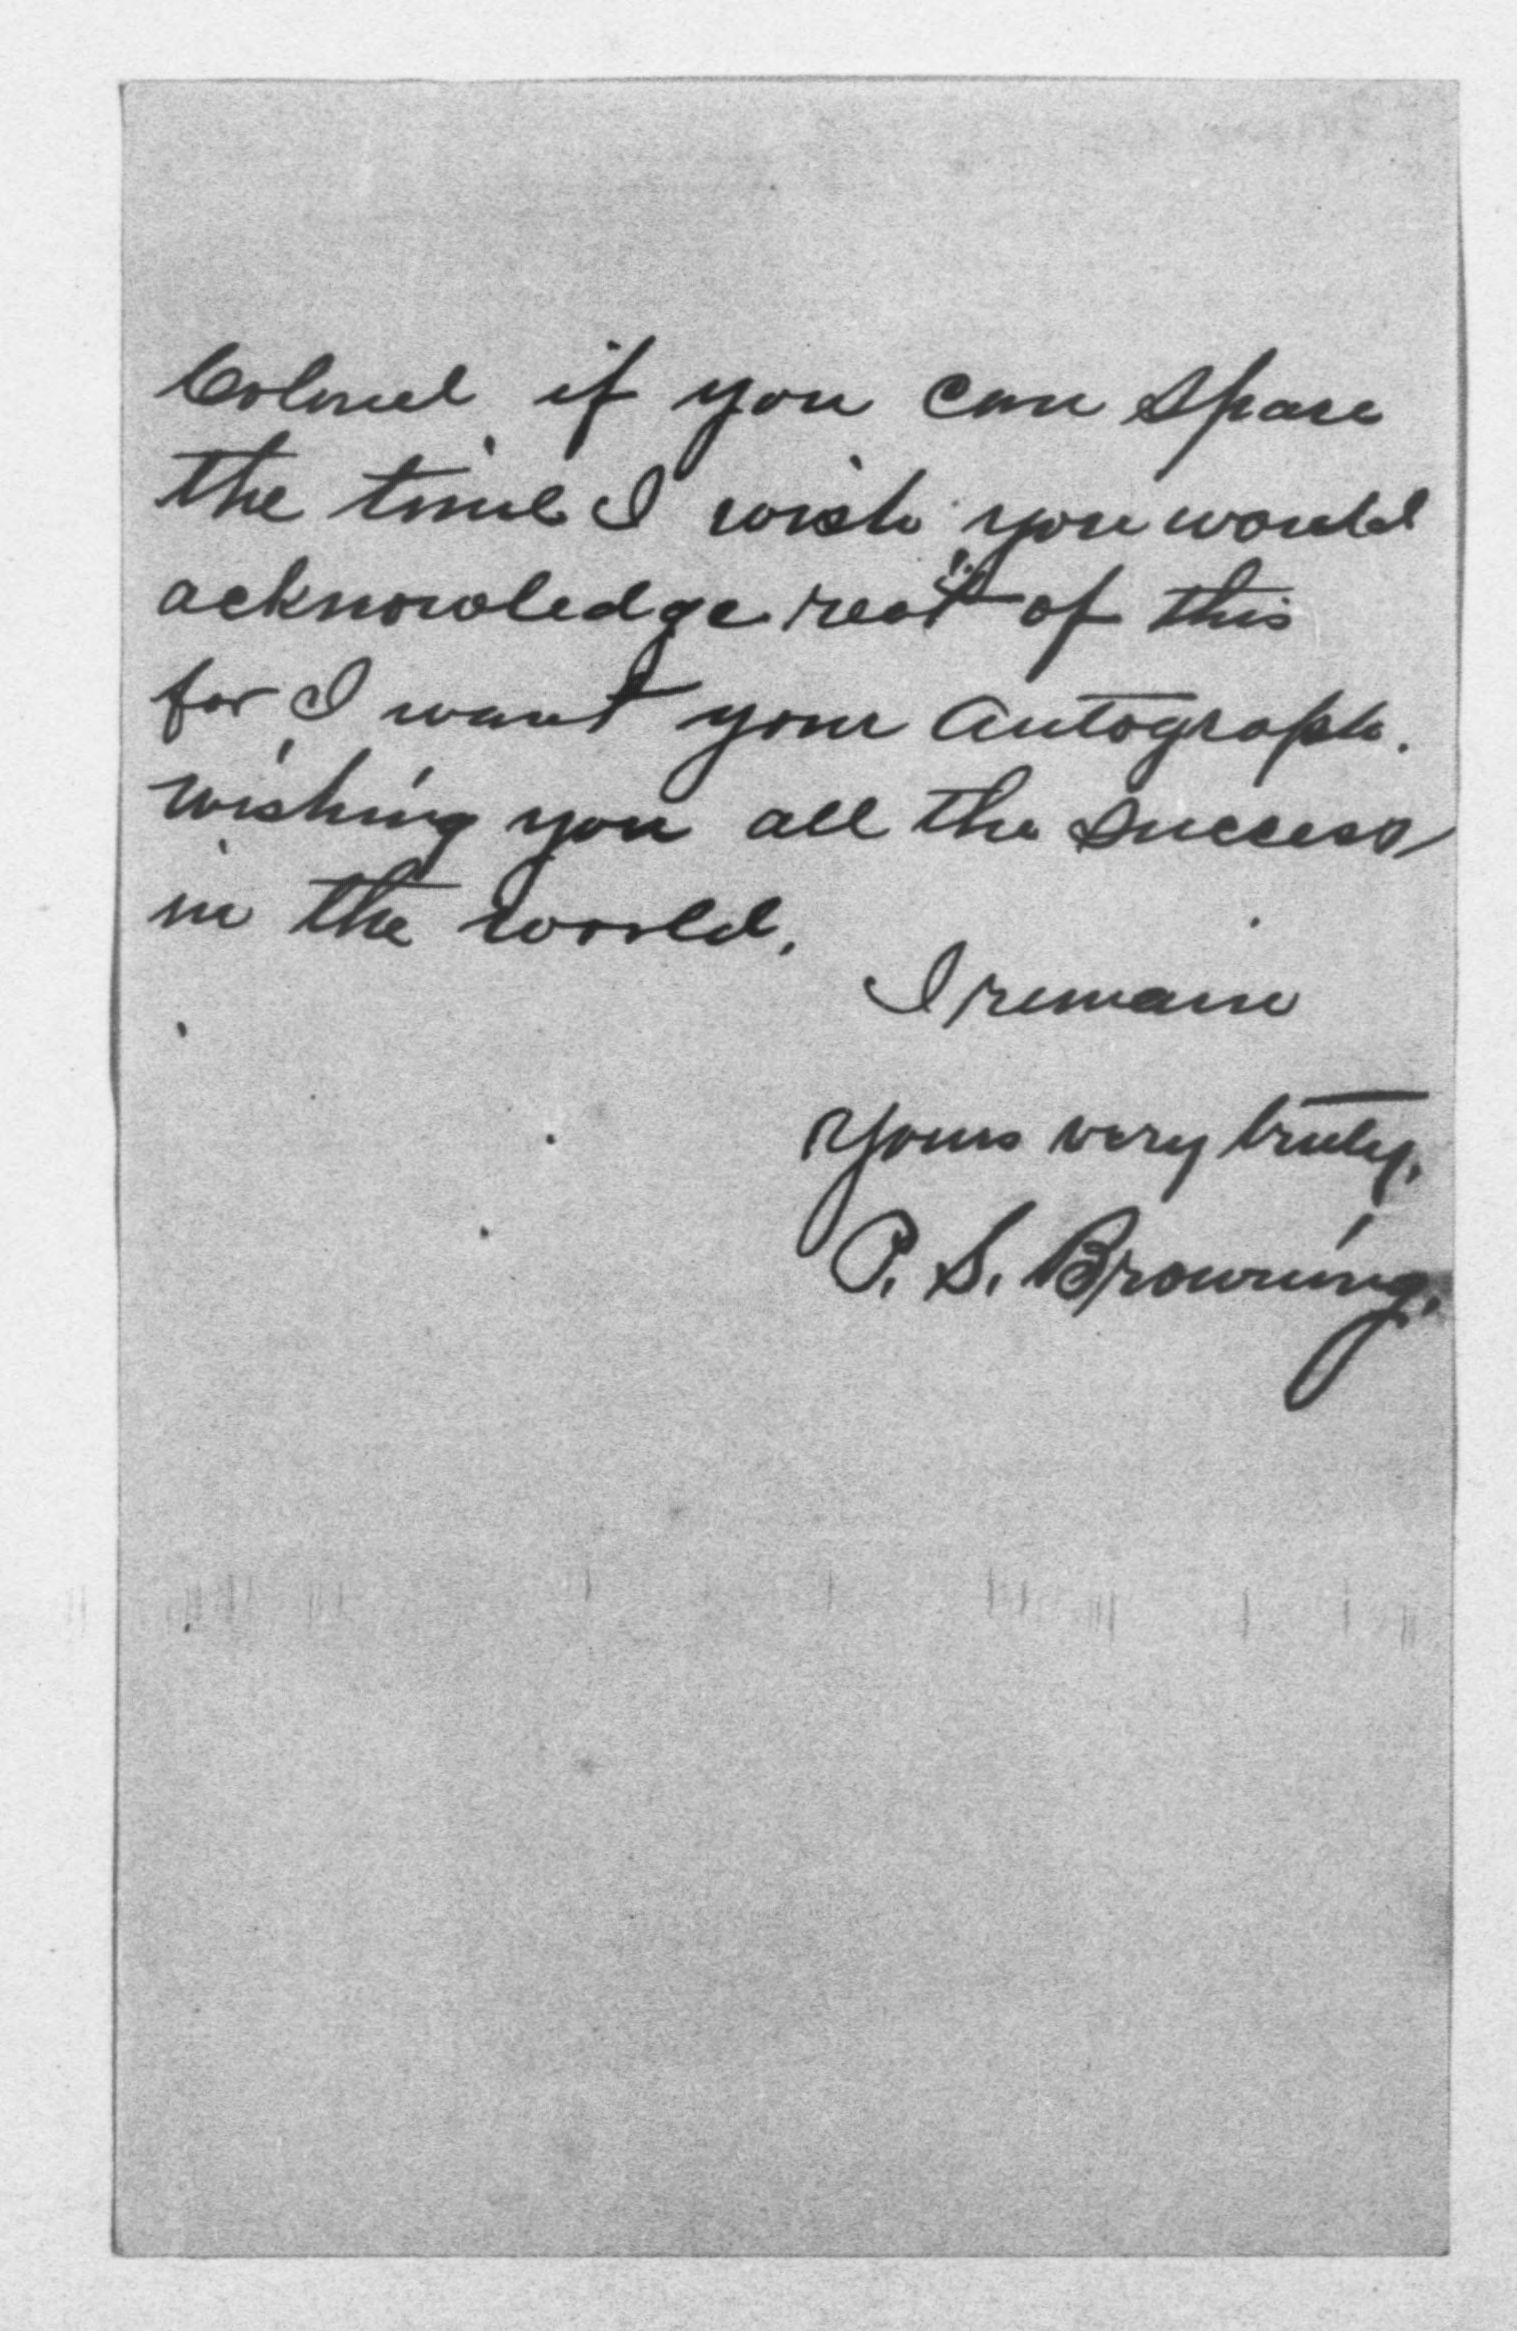 Colonel if you can spare
the time I wish you would
acknowledge rect of this
for I want your autograph.
Wishing you all the success
in the world.
I remain
Yours very truly,
P. S. Browning.